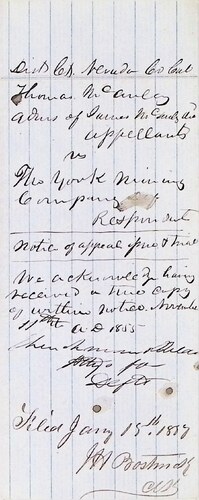 Dist Ct. Nevada Co Cal
Thomas McCauley
admr of James McCauley
appellants
vs
The York Mining
Company
Respondent
Notice of appeal
We acknowledge having
received a true copy
of within notice November
11th A D 1855
Attys for
Defts
Filed Jany 15th. 1857